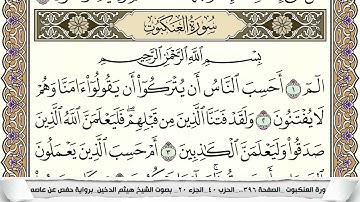 سُورَةُ العَنكَبُوتِ
بِسْمِ ٱللَّهِ ٱلرَّحْمَٰنِ ٱلرَّحِيمِ
الٓمٓ ١ أَحَسِبَ ٱلنَّاسُ أَن يُتْرَكُوٓا۟ أَن يَقُولُوٓا۟ ءَامَنَّا وَهُمْ
لَا يُفْتَنُونَ ٢ وَلَقَدْ فَتَنَّا ٱلَّذِينَ مِن قَبْلِهِمْ ۖ فَلَيَعْلَمَنَّ ٱللَّهُ ٱلَّذِينَ
صَدَقُوا۟ وَلَيَعْلَمَنَّ ٱلْكَٰذِبِينَ ٣ أَمْ حَسِبَ ٱلَّذِينَ يَعْمَلُونَ
ورة العنكبوت .. الصفحة ٣٩٦.. الحزب ٤٠ ..الجزء ٢٠ .. بصوت الشيخ هيثم الدخين برواية حفص عن عاصم